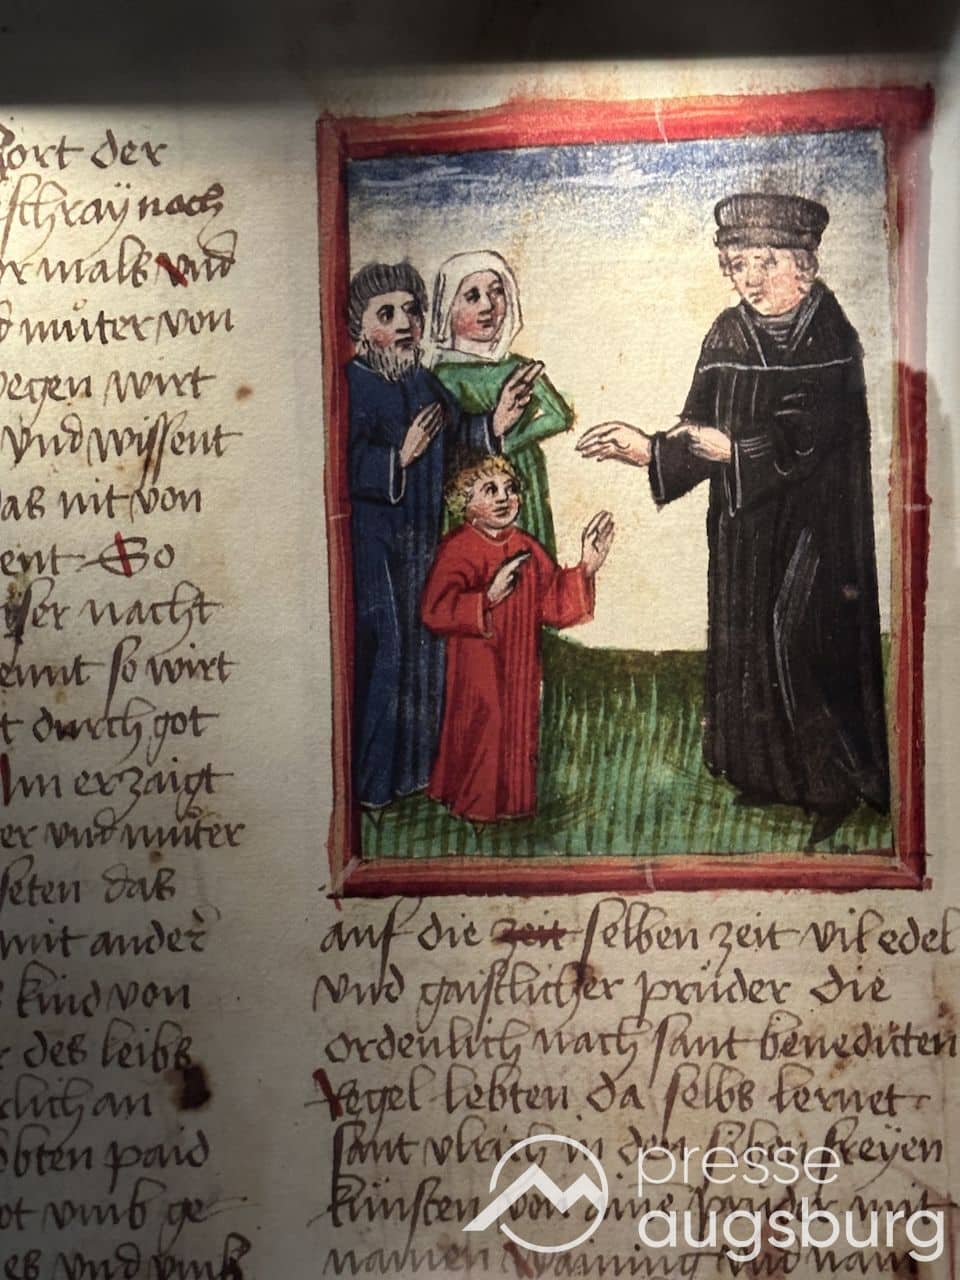 ort der
schray noch
or mals vnd
muͦter von
wegen wirt
vnd wissent
das nit von
ent So
ser nacht
ennt so wirt
t durch got
Im erzaigt
er vnd muͦter
seten das
mit ander
kind von
des leibs
clich an
obten paid
ot vmb ge
es vnd vmb
auf die zeit selben zeit vil edel
vnd gaistlicher pruͤder die
ordenlich nach sant benedicten
Regel lebten da selbs lernet
sant vlrich in den siben freyen
künsten von aine pruͦder mit
namen waining vnd nam
presse
augsburg